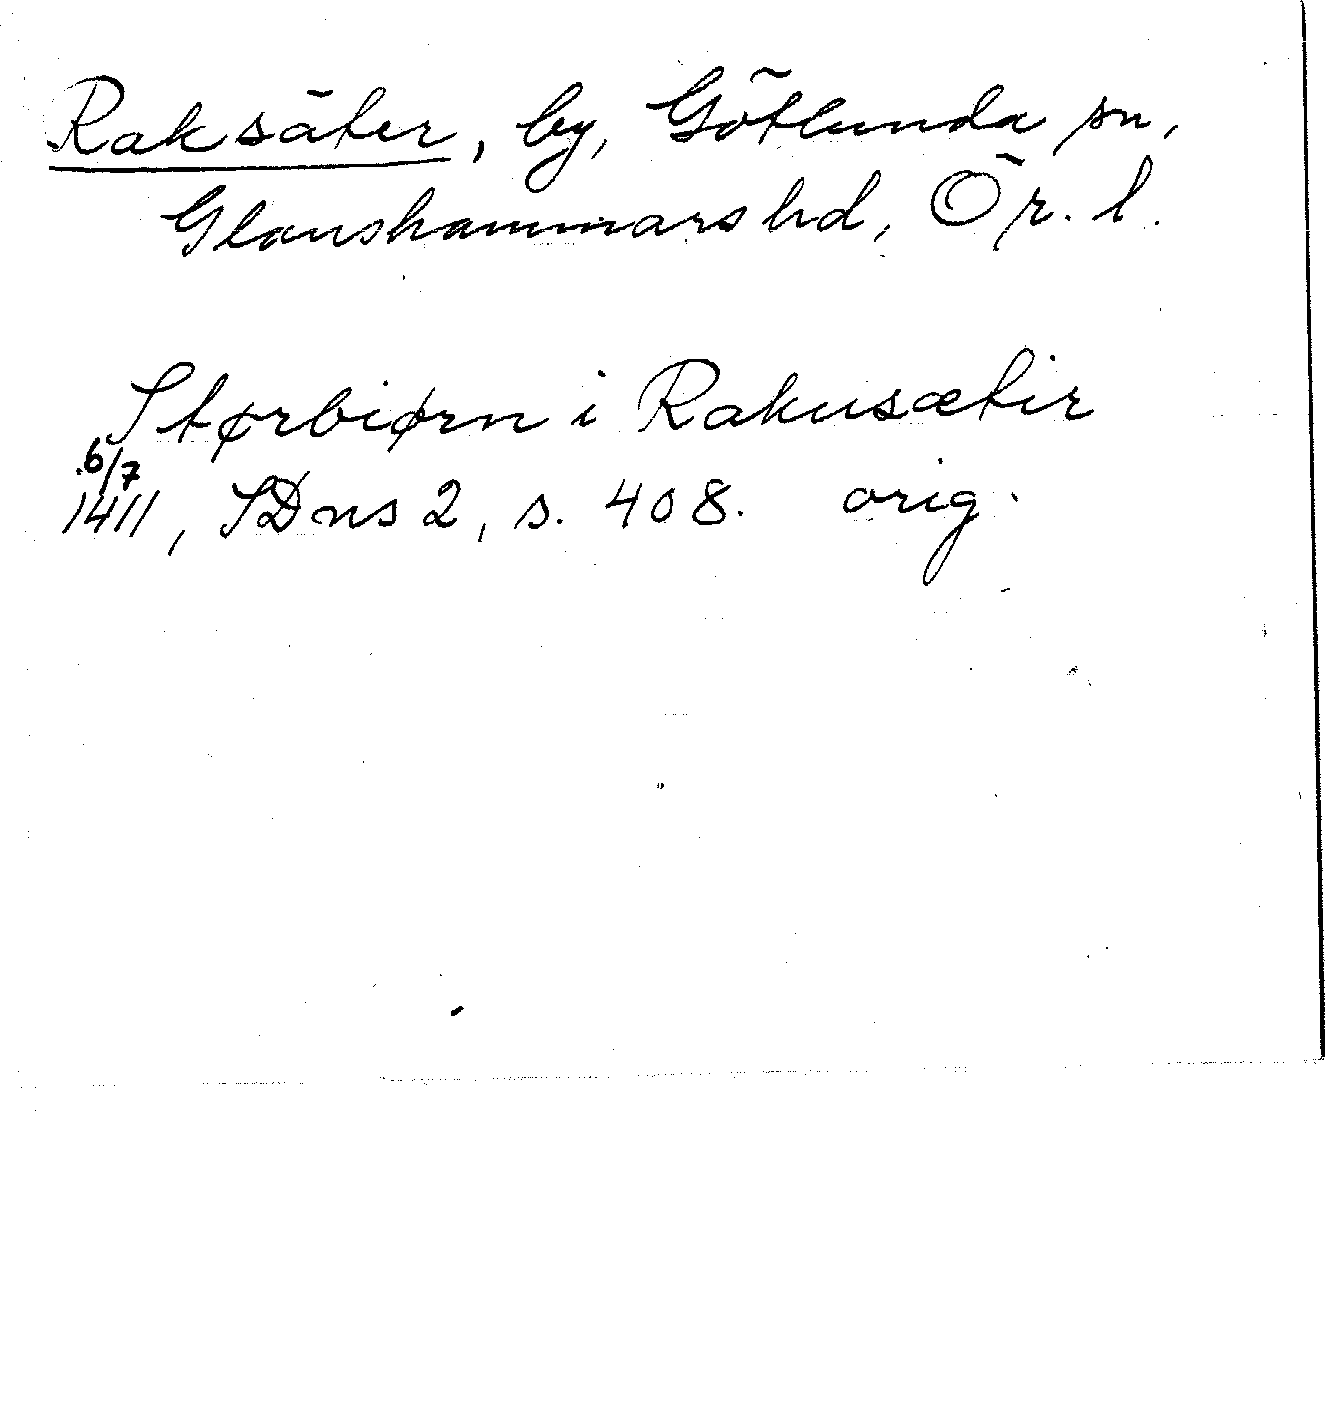 Raksäter, by, Götlunda sn,
Glanshammars hd, Ör. l.
Størbiørn i Rakusætir
6/7
1411, SDns 2, s. 408. orig.